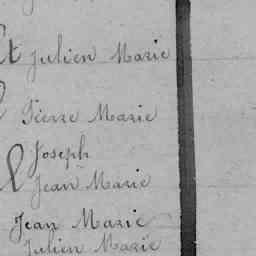 Julien Marie
Pierre Marie
Joseph
Jean Marie
Jean Marie
Julien Marie